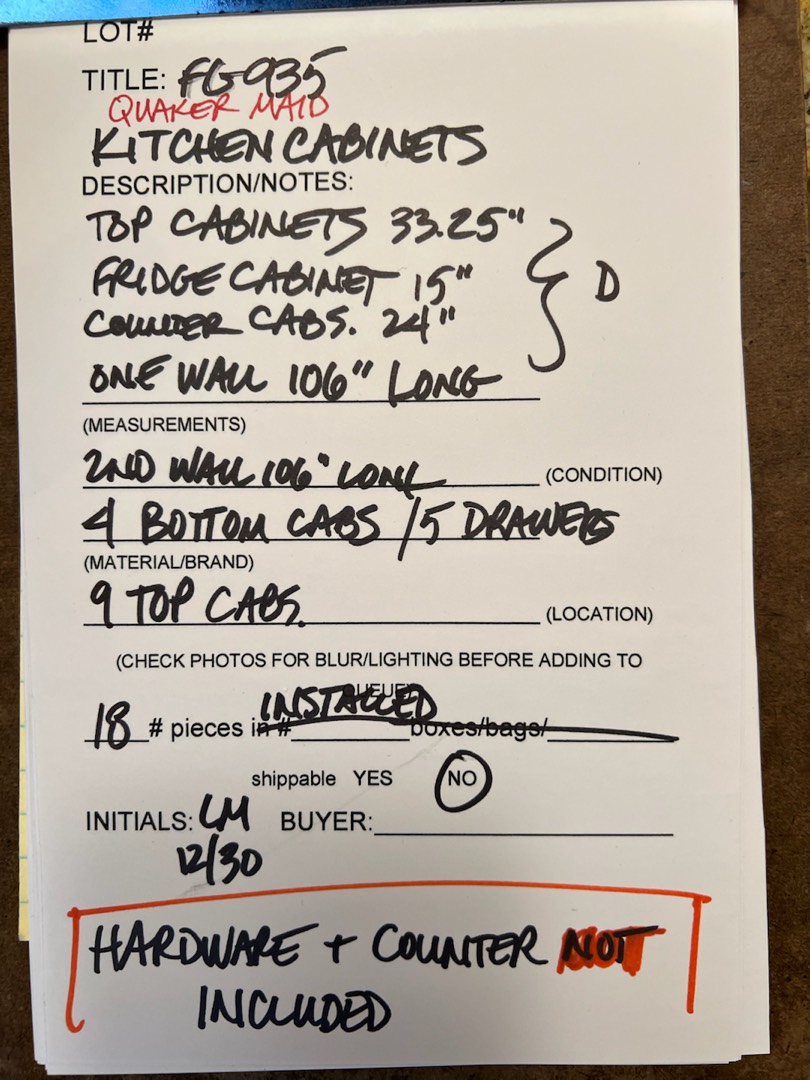 LOT#
TITLE: FG-935
QUAKER MAID
KITCHEN CABINETS
DESCRIPTION/NOTES:
TOP CABINETS 33.25"
FRIDGE CABINET 15" } D
COUNTER CABS. 24"
ONE WALL 106" LONG
(MEASUREMENTS)
2ND WALL 106" LONG (CONDITION)
4 BOTTOM CABS / 5 DRAWERS
(MATERIAL/BRAND)
9 TOP CABS. (LOCATION)
(CHECK PHOTOS FOR BLUR/LIGHTING BEFORE ADDING TO
QUEUE)
INSTALLED
18 # pieces in # boxes/bags/
shippable YES NO
INITIALS: LM BUYER:
12/30
HARDWARE + COUNTER NOT
INCLUDED